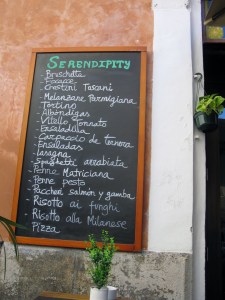 SERENDIPITY
- Bruschetta
- Focacce
- Crostini Toscani
- Melanzane Parmigiana
- Tortino
- Albóndigas
- Vitello Tonnato
- Ensaladilla
- Carpaccio de ternera
- Ensaladas
- lasagna
- Spaghetti arrabiata
- Penne Matriciana
- Penne pesto
- Paccheri salmón y gamba
- Risotto ai funghi
- Risotto alla Milanese
- Pizza